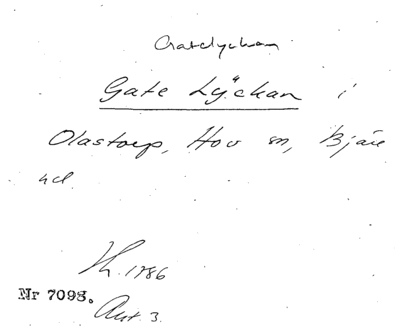 Gatelyckan
Gate Lÿckan i
Olastorp, Hov sn, Bjäre
hd.
1786
Nr 7098.
Akt 3.